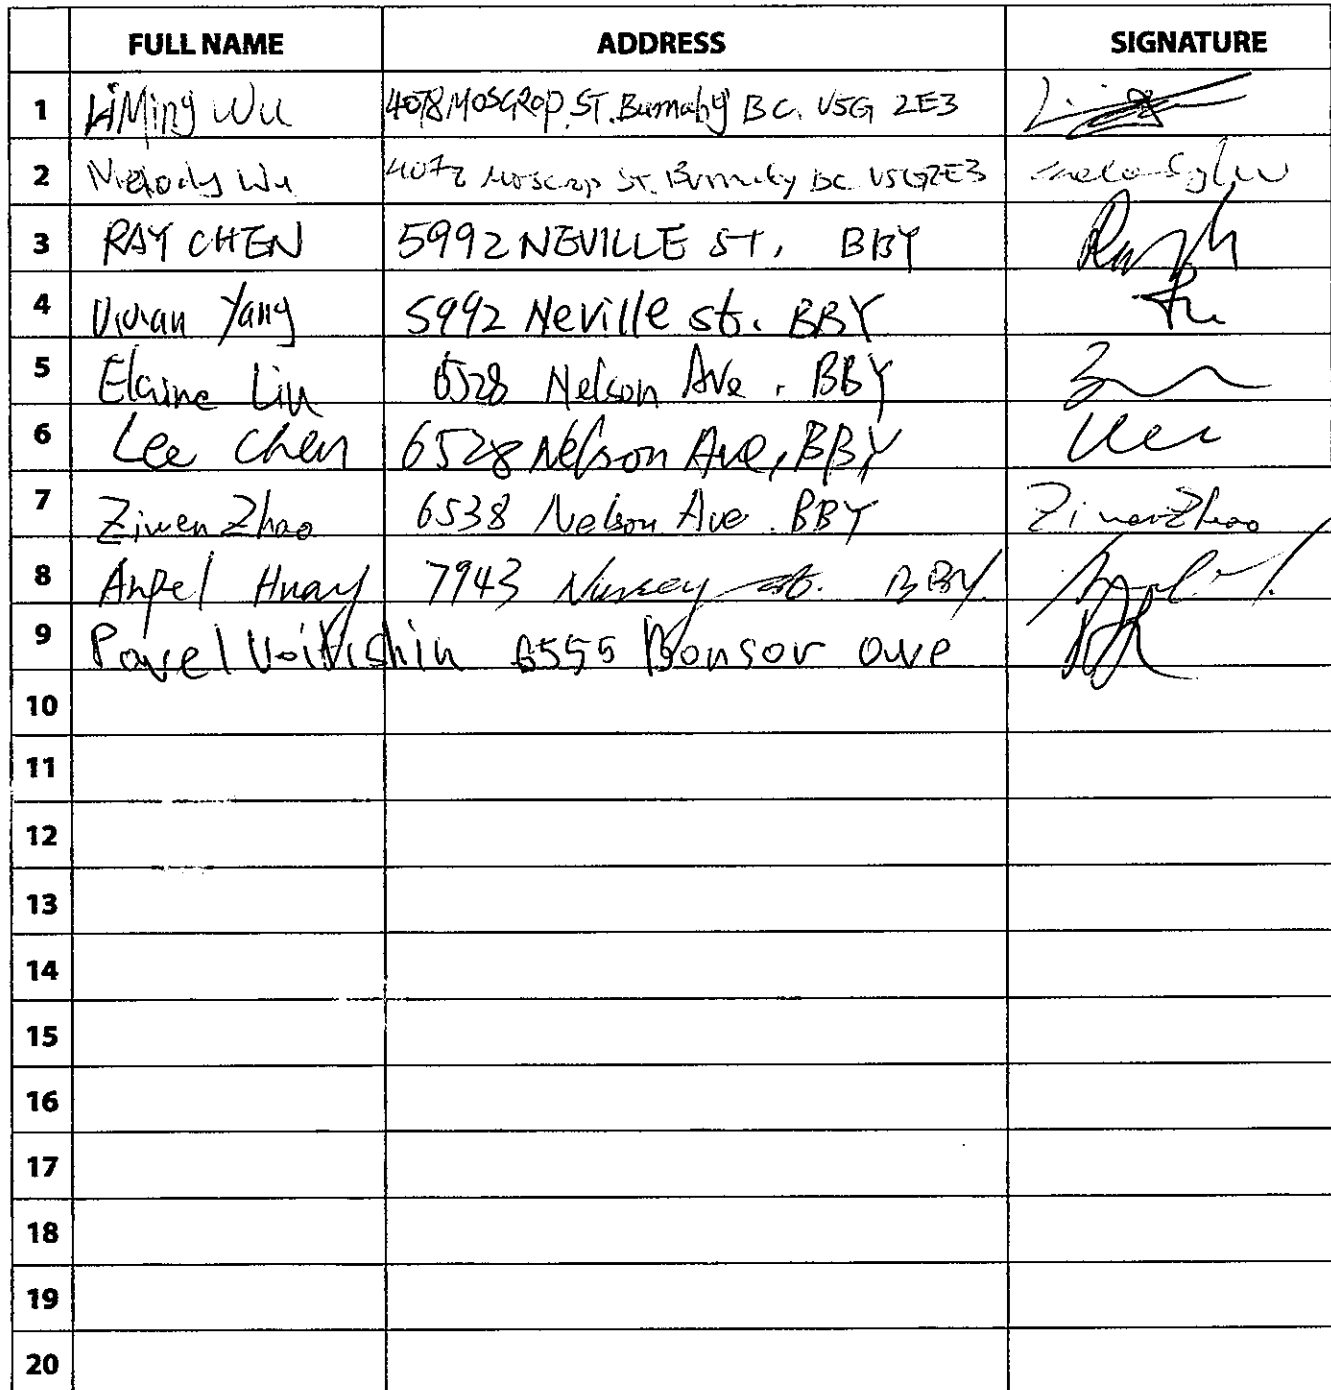 FULL NAME ADDRESS SIGNATURE
1 LiMing Wu 4078 MOSCROP ST. Burnaby BC. V5G 2E3
2 Melody Wu 4072 Moscrop ST. Burnaby BC V5G2E3
3 RAY CHEN 5992 NEVILLE ST, BBY
4 Vivian Yang 5992 Neville st. BBY
5 Elaine Liu 6528 Nelson Ave, BBY
6 Lee Chen 6528 Nelson Ave, BBY
7 Ziwen Zhao 6538 Nelson Ave. BBY Ziwen Zhao
8 7943 st. BBY.
9 Pavel 6555 Bonsor ave
10
11
12
13
14
15
16
17
18
19
20